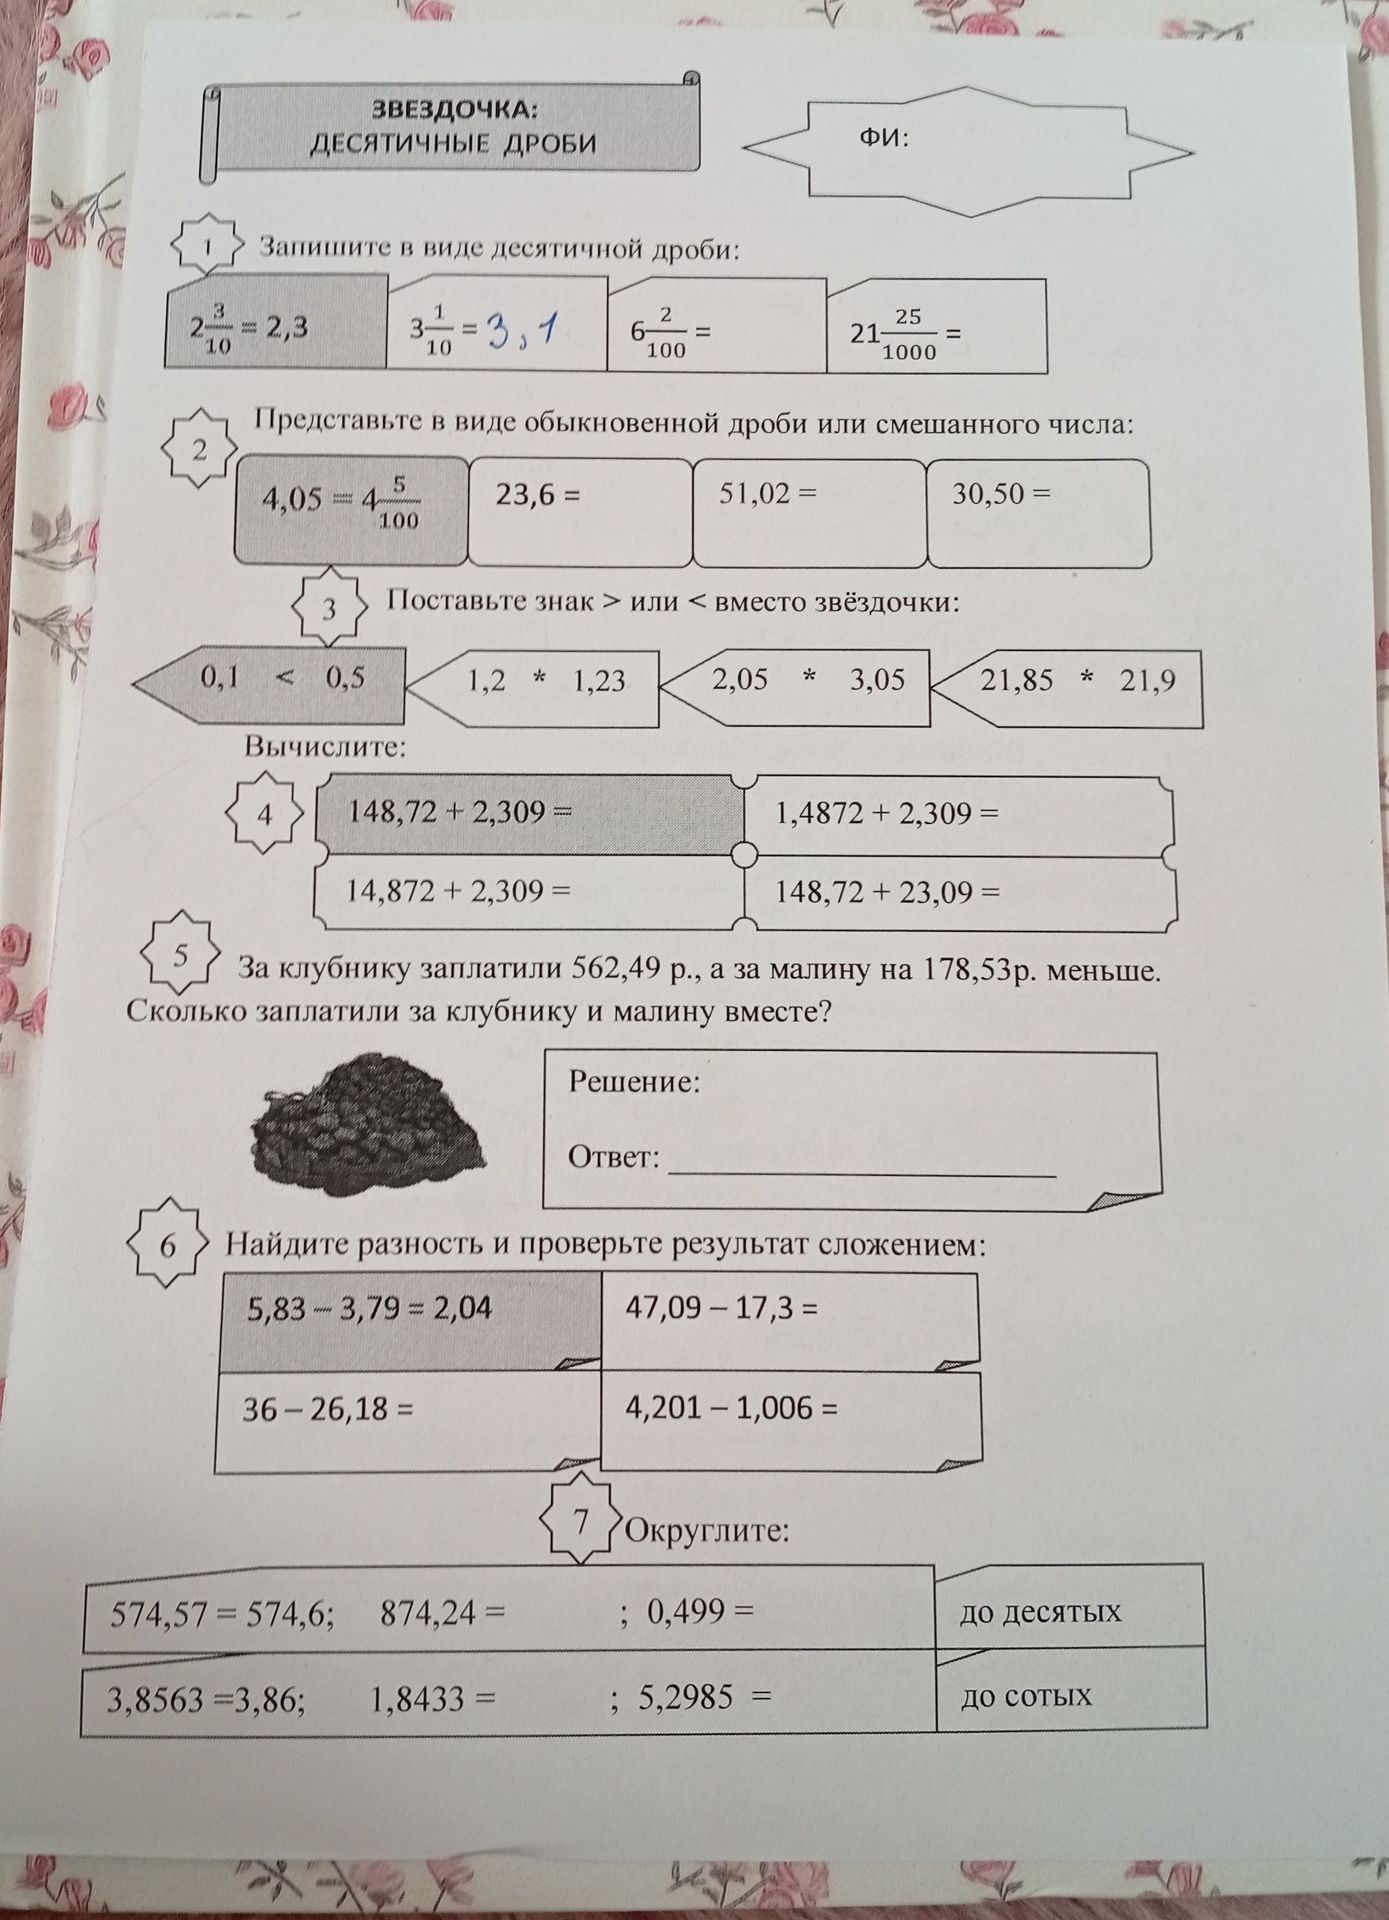 ЗВЕЗДОЧКА:
ДЕСЯТИЧНЫЕ ДРОБИ
ФИ:
1 Запишите в виде десятичной дроби:
2 3/10 = 2,3 3 1/10 = 3,1 6 2/100 = 21 25/1000 =
2 Представьте в виде обыкновенной дроби или смешанного числа:
4,05 = 4 5/100 23,6 = 51,02 = 30,50 =
3 Поставьте знак > или < вместо звёздочки:
0,1 < 0,5 1,2 * 1,23 2,05 * 3,05 21,85 * 21,9
Вычислите:
4 148,72 + 2,309 = 1,4872 + 2,309 =
14,872 + 2,309 = 148,72 + 23,09 =
5 За клубнику заплатили 562,49 р., а за малину на 178,53р. меньше.
Сколько заплатили за клубнику и малину вместе?
Решение:
Ответ:
6 Найдите разность и проверьте результат сложением:
5,83 – 3,79 = 2,04 47,09 – 17,3 =
36 – 26,18 = 4,201 – 1,006 =
7 Округлите:
574,57 = 574,6; 874,24 = ; 0,499 = до десятых
3,8563 =3,86; 1,8433 = ; 5,2985 = до сотых